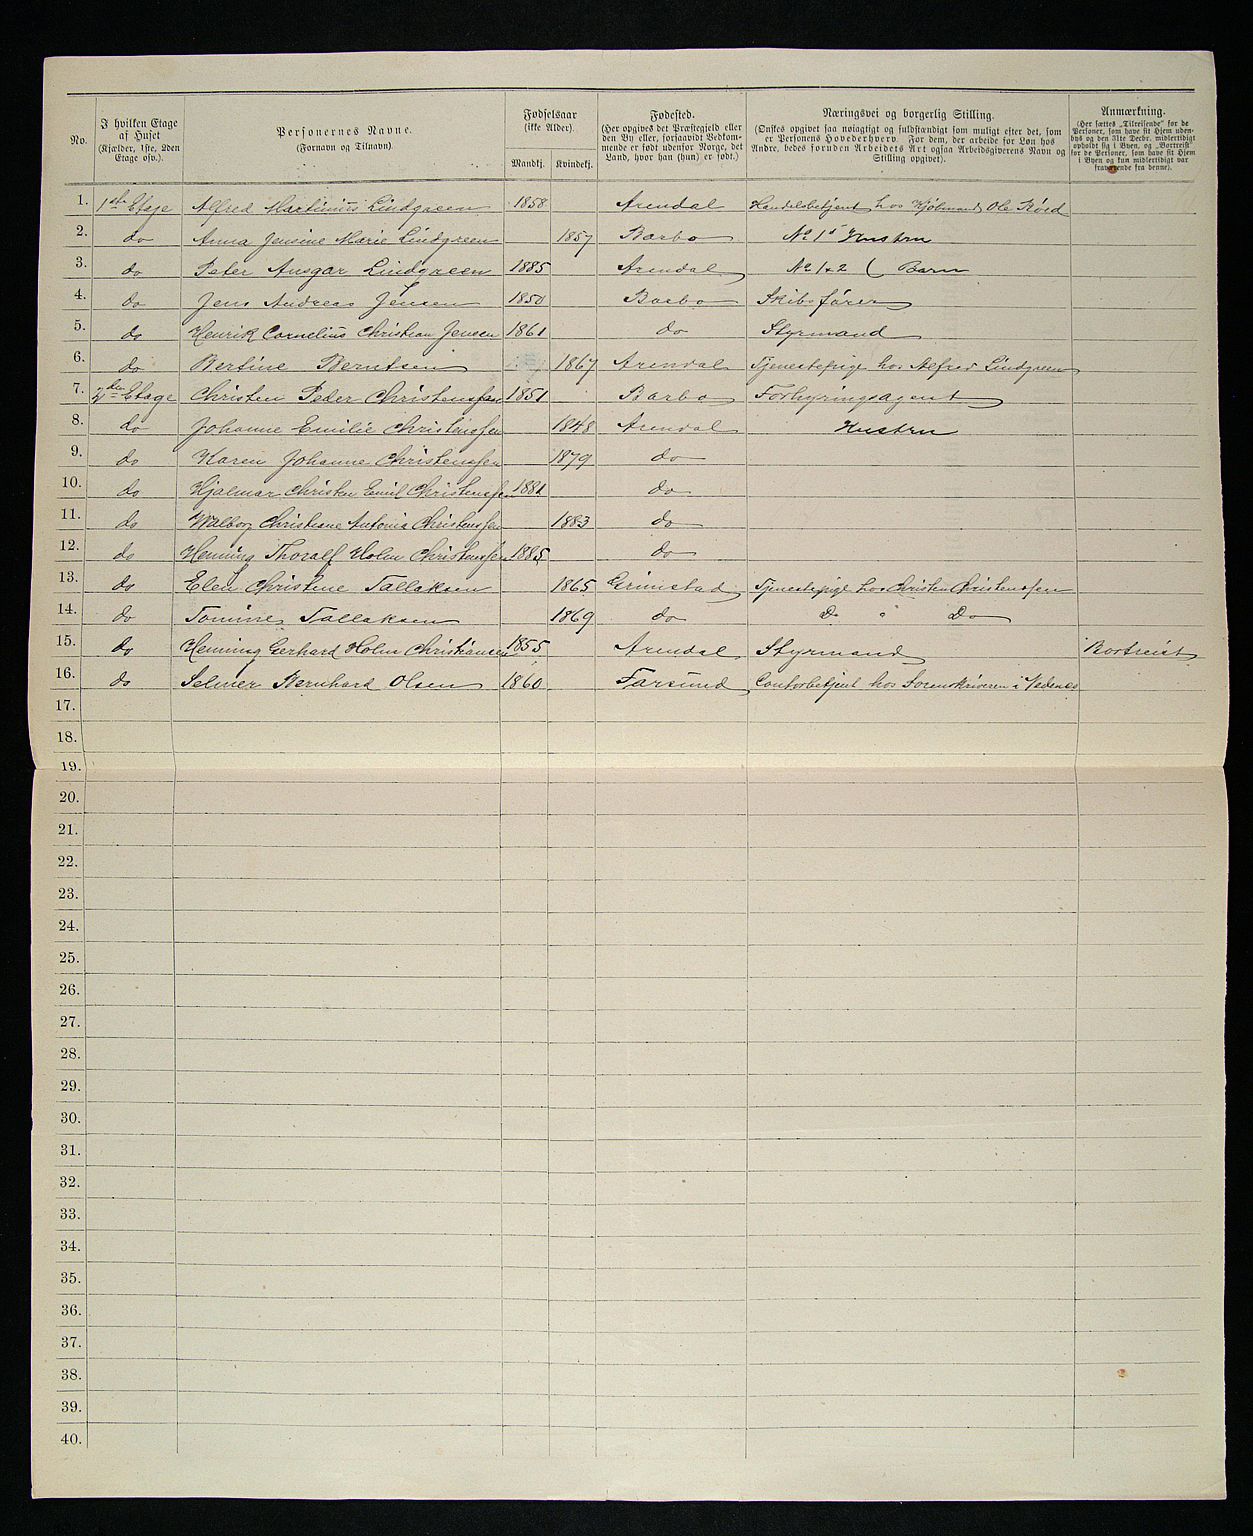 No. I hvilken Etage af Huset (Kjælder, 1ste, 2den Etage osv.). Personernes Navne. (Fornavn og Tilnavn). Fødselsaar (ikke Alder). Mandkj. Kvindekj. Fødested. (Her opgives det Præstegjeld eller den By eller, forsaavidt Vedkommende er født udenfor Norge, det Land, hvor han (hun) er født.) Næringsvei og borgerlig Stilling. (Ønskes opgivet saa nøiagtigt og fuldstændigt som muligt efter det, som er Personens Hovederhverv. For dem, der arbeide for Løn hos Andre, bedes foruden Arbeidets Art ogsaa Arbeidsgiverens Navn og Stilling opgivet). Anmærkning. (Her sættes „Tilreisende“ for de Personer, som have sit Hjem udenbys og den 31te Decbr. midlertidigt opholdt sig i Byen, og „Bortreist“ for de Personer, som have sit Hjem i Byen og kun midlertidigt var fraværende fra denne).
1. 1ste Etage Alfred Martinius Lindgreen 1858 Arendal Handelsbetjent hos Kjöbmand Ole Röed
2. do Anna Jensine Marie Lindgreen 1857 Barbo No 1s Hustru
3. do Peter Ansgar Lindgreen 1885 Arendal No 1 & 2 ( Barn
4. do Jens Andreas Jensen 1850 Barbo Skibsförer
5. do Henrik Cornelius Christian Jensen 1861 do Styrmand
6. do Bertine Berntsen 1867 Arendal Tjenestepige hos Alfred Lindgreen
7. 2den Etage Christen Peder Christenssen 1851 Barbo Forhyringsagent
8. do Johanne Emilie Christenssen 1848 Arendal Hustru
9. do Karen Johanne Christenssen 1879 do
10. do Hjalmar Christen Emil Christenssen 1881 do
11. do Walborg Christiane Antonia Christenssen 1883 do
12. do Henning Thoralf Holm Christenssen 1885 do
13. do Elen Christine Tallaksen 1865 Grimstad Tjenestepige hos Christen Christenssen
14. do Tomine Tallaksen 1869 do Do " Do
15. do Henning Gerhard Holm Christiansen 1855 Arendal Styrmand Bortreist
16. do Selmer Bernhard Olsen 1860 Farsund Contorbetjent hos Sorenskriveren i Nedenes
17.
18.
19.
20.
21.
22.
23.
24.
25.
26.
27.
28.
29.
30.
31.
32.
33.
34.
35.
36.
37.
38.
39.
40.